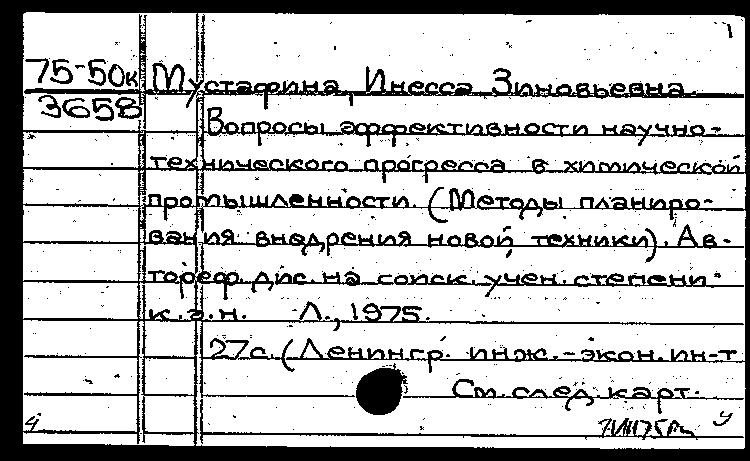 75-50к Мустафина, Инесса Зиновьевна.
3658
Вопросы эффективности научно-
технического прогресса в химической
промышленности. (Методы планиро-
вания внедрения новой техники). Ав-
тореф. дис. на соиск. учен. степени
к.э.н. Л., 1975.
27с. (Ленингр. инж.-экон. ин-т
См. след. карт.
4 У